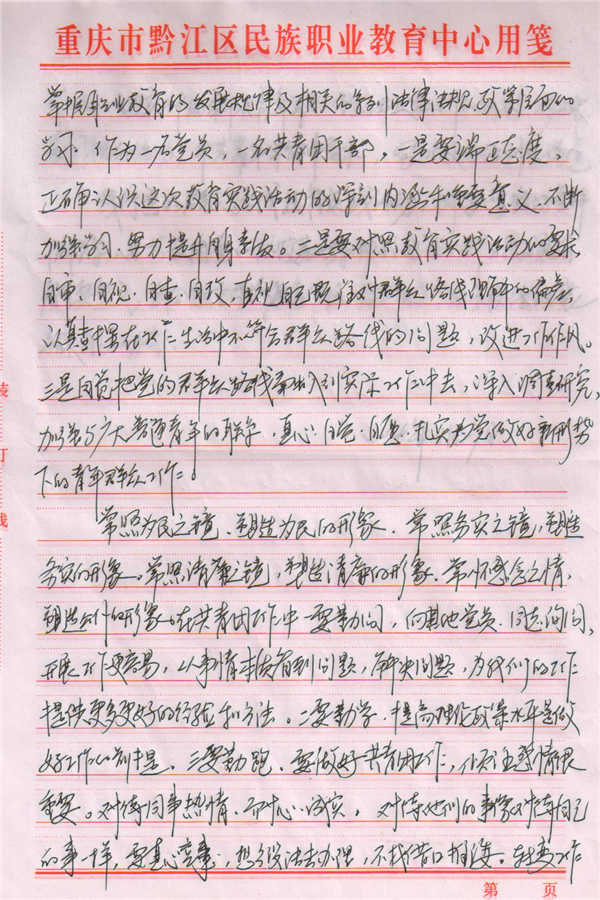 重庆市黔江区民族职业教育中心用笺
掌握职业教育的发展规律及相关的系列法律法规、政策层面的
学习。作为一名党员,一名共青团干部,一是要端正态度。
正确认识这次教育实践活动的深刻内涵和重要意义、不断
加强学习、努力提升自身素质。二是要对照教育实践活动的要求
自审、自视、自查、自改,直视自己既往对群众路线理解中的偏差,
认真查摆在工作生活中不符合群众路线的问题,改进工作作风。
三是自觉把党的群众路线深入到实际工作中去,深入调查研究,
加强与广大普通青年的联系,真心、自觉、自愿、扎实为党做好新形势
下的青年群众工作。
常照为民之镜、塑造为民的形象、常照务实之镜,塑造
务实的形象。常照清廉之镜,塑造清廉的形象、常怀感念之情,
塑造公仆的形象。在共青团工作中一要勤问,向其他党员、同志询问,
开展工作更容易,从事情本质看到问题,解决问题,为我们的工作
提供更多更好的经验和方法。二要勤学、提高理论政策水平是做
好工作的前提。三要勤跑、要做好共青团工作,
重要。对待同事热情、耐心、诚实。对待他们的事象对待自己
的事一样,要真心实意,想方设法去办理,不找借口推诿。转变工作
第 页
装
订
线